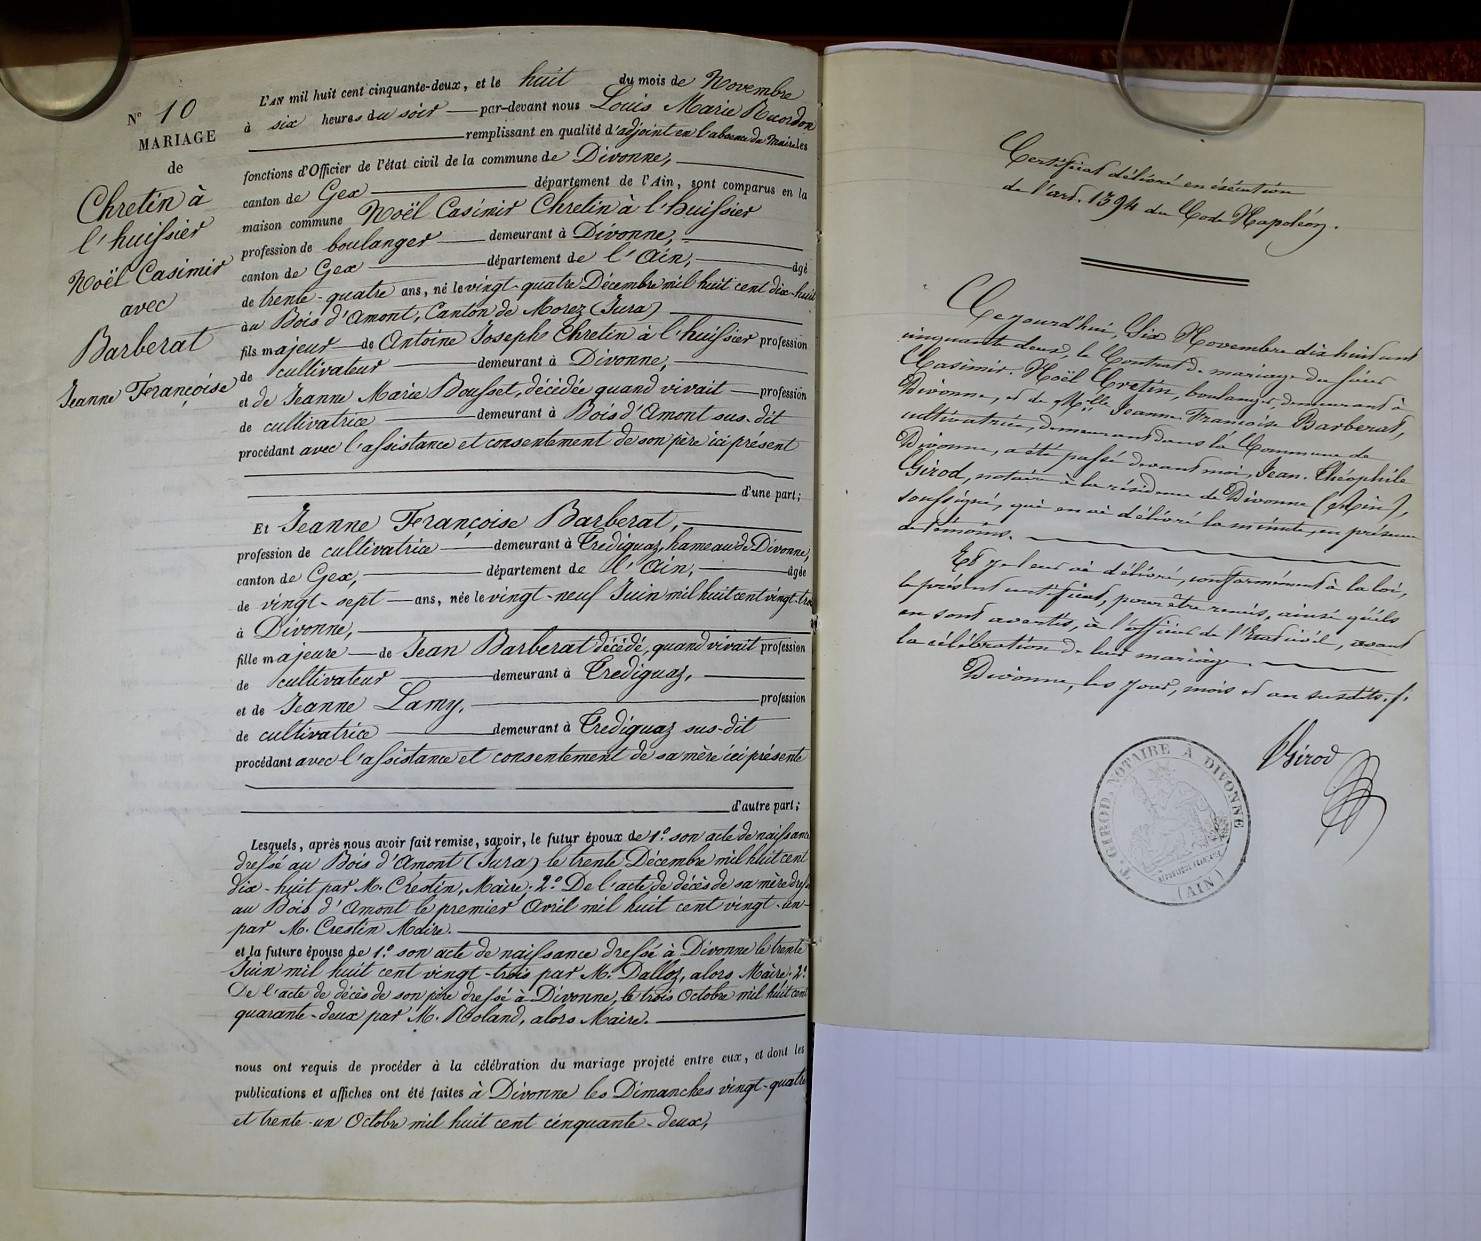 N° 10
MARIAGE
de
Chretin à
l'huissier
Noël Casimir
avec
Barberat
Jeanne Françoise
L'AN mil huit cent cinquante-deux, et le huit du mois de Novembre
à six heures du soir par-devant nous Louis Marie
remplissant en qualité d'adjoint en l'absence du Maire les
fonctions d'Officier de l'état civil de la commune de Divonne,
canton de Gex département de l'Ain, sont comparus en la
maison commune Noël Casimir Chretin à l'huissier
profession de boulanger demeurant à Divonne,
canton de Gex département de l'Ain, âgé
de trente-quatre ans, né le vingt-quatre Décembre mil huit cent dix-huit
au Bois d'Amont, Canton de Morez (Jura)
fils majeur de Antoine Joseph Chretin à l'huissier profession
de cultivateur demeurant à Divonne,
et de Jeanne Marie Bousset, décédée quand vivait profession
de cultivatrice demeurant à Bois d'Amont sus-dit
procédant avec l'assistance et consentement de son père ici présent
d'une part;
Et Jeanne Françoise Barberat,
profession de cultivatrice demeurant à Trediguaz, hameau de Divonne,
canton de Gex, département de l'Ain, âgée
de vingt-sept ans, née le vingt-neuf Juin mil huit cent vingt-trois
à Divonne,
fille majeure de Jean Barberat décédé, quand vivait profession
de cultivateur demeurant à Trediguaz,
et de Jeanne Lamy, profession
de cultivatrice demeurant à Trediguaz sus-dit
procédant avec l'assistance et consentement de sa mère ici présente
d'autre part;
Lesquels, après nous avoir fait remise, savoir, le futur époux de 1° son acte de naissance
dressé au Bois d'Amont (Jura) le trente Décembre mil huit cent
dix-huit par M. Crestin, Maire; 2° De l'acte de décès de sa mère dressé
au Bois d'Amont le premier Avril mil huit cent vingt-un
par M. Crestin Maire.
et la future épouse de 1° son acte de naissance dressé à Divonne le trente
Juin mil huit cent vingt-trois par M. Dalloz, alors Maire; 2°
De l'acte de décès de son père dressé à Divonne, le trois Octobre mil huit cent
quarante-deux par M. Roland, alors Maire.
nous ont requis de procéder à la célébration du mariage projeté entre eux, et dont les
publications et affiches ont été faites à Divonne les Dimanches vingt-quatre
et trente-un Octobre mil huit cent cinquante-deux,
Certificat délivré en exécution
de l'art. 1394 du Code Napoléon.
Ce jourd'hui, Six Novembre dix huit cent
cinquante deux, le Contrat de mariage du sieur
Casimir-Noël Cretin, boulanger, demeurant à
Divonne, et de Mlle Jeanne Françoise Barberat,
cultivatrice, demeurant dans la Commune de
Divonne, a été passé devant moi, Jean-Théophile
Girod, notaire à la résidence de Divonne (Ain),
soussigné, qui en ai délivré la minute, en présence
de témoins.
Et je leur ai délivré, conformément à la loi,
le présent certificat, pour être remis, ainsi qu'ils
en sont avertis, à l'officier de l'Etat civil, avant
la célébration de leur mariage.
Divonne, les jour, mois et an susdits.
Girod
T. GIROD NOTAIRE A DIVONNE
(AIN)